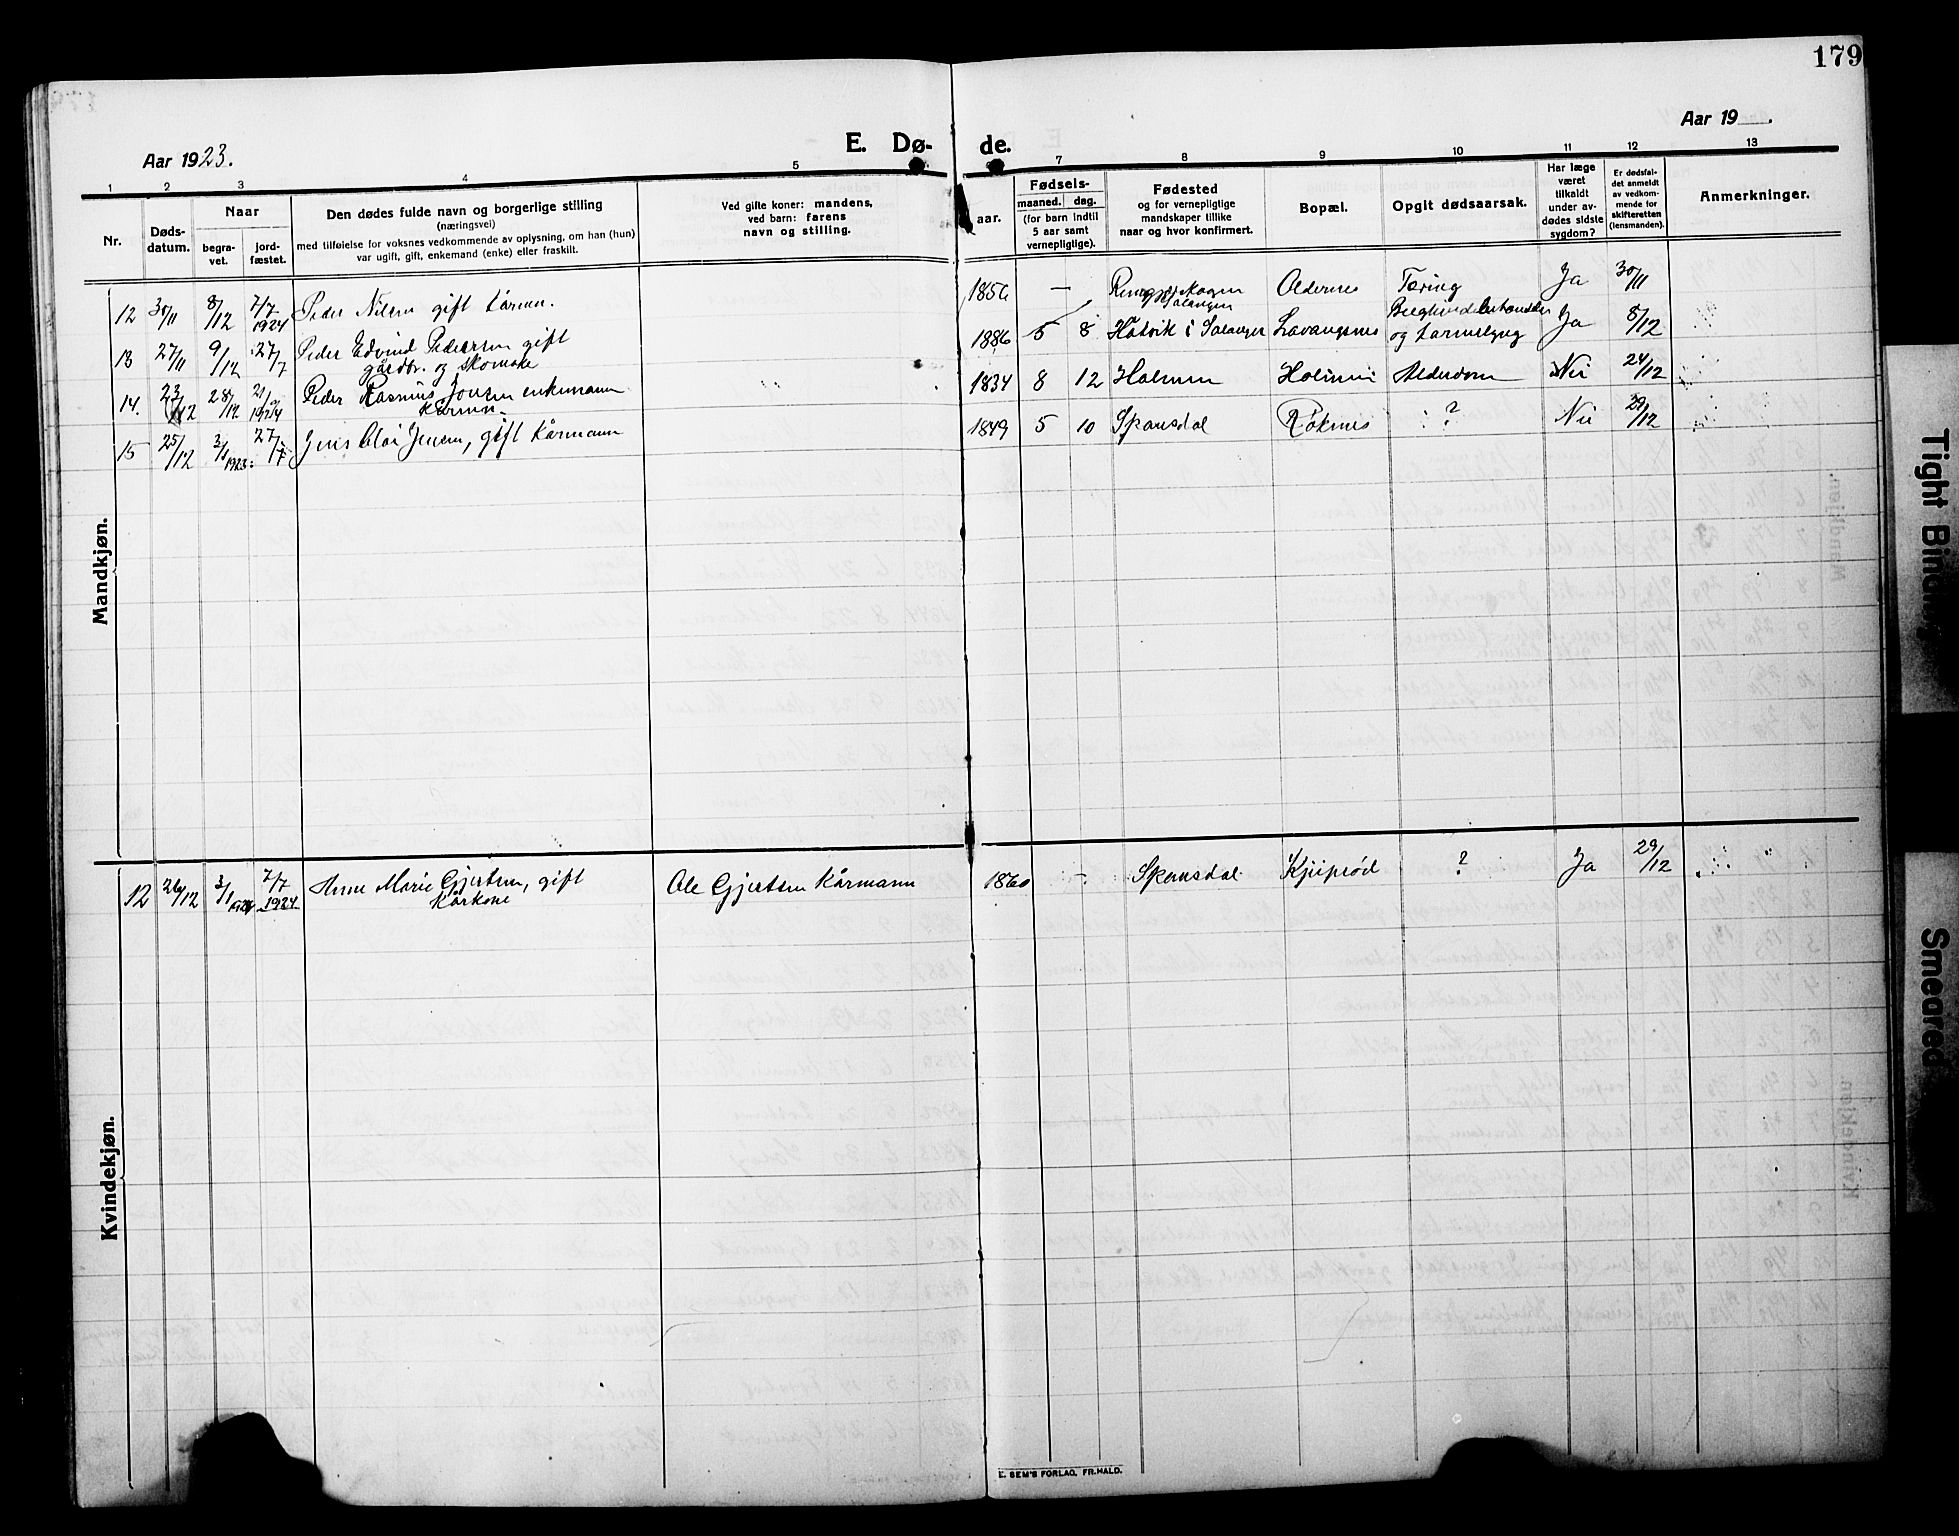 179
Aar 1923.
E. Dø-
de.
Aar 19 .
1
2
3
4
5
7
8
9
10
11
12
13
Nr.
Døds-
datum.
Naar
begra-
vet.
jord-
fæstet.
Den dødes fulde navn og borgerlige stilling
(næringsvei)
med tilføielse for voksnes vedkommende av oplysning, om han (hun)
var ugift, gift, enkemand (enke) eller fraskilt.
Ved gifte koner: mandens,
ved barn: farens
navn og stilling.
aar.
Fødsels-
maaned. dag.
(for barn indtil
5 aar samt
vernepligtige).
Fødested
og for vernepligtige
mandskaper tillike
naar og hvor konfirmert.
Bopæl.
Opgit dødsaarsak.
Har læge
været
tilkaldt
under av-
dødes sidste
sygdom?
Er dødsfal-
det anmeldt
av vedkom-
mende for
skifteretten
(lensmanden).
Anmerkninger.
Mandkjøn.
12 30/11 8/12 7/7 1924 Peder Nilsen gift kårmn. 1856 — Salangen Oldernes Tæring Ja 30/11
13 27/11 9/12 27/7 Peder Edvind Pedersen gift
gårdbr. og skomake 1886 5 8 Hatvik i Salangen Lavangsnes og Ja 8/12
14. 23/12 28/12 1924 Peder Rasmus Jonsen enkemann
kårmn. 1834 8 12 Holmen Holmen Alderdom Nei 24/12
15 25/12 3/1 1923 27/7 Jens Olai Jensen, gift kårmann 1849 5 10 Spansdal Røknes ? Nei 29/12
Kvindekjøn.
12 26/12 3/1 1924 7/7 1924 Anne Marie Gjertsen, gift
kårkone Ole Gjertsen kårmann 1860 - Spansdal Ja 29/12
?
E. SEM'S FORLAG, FR.HALD.
Tight Binding
Smeared